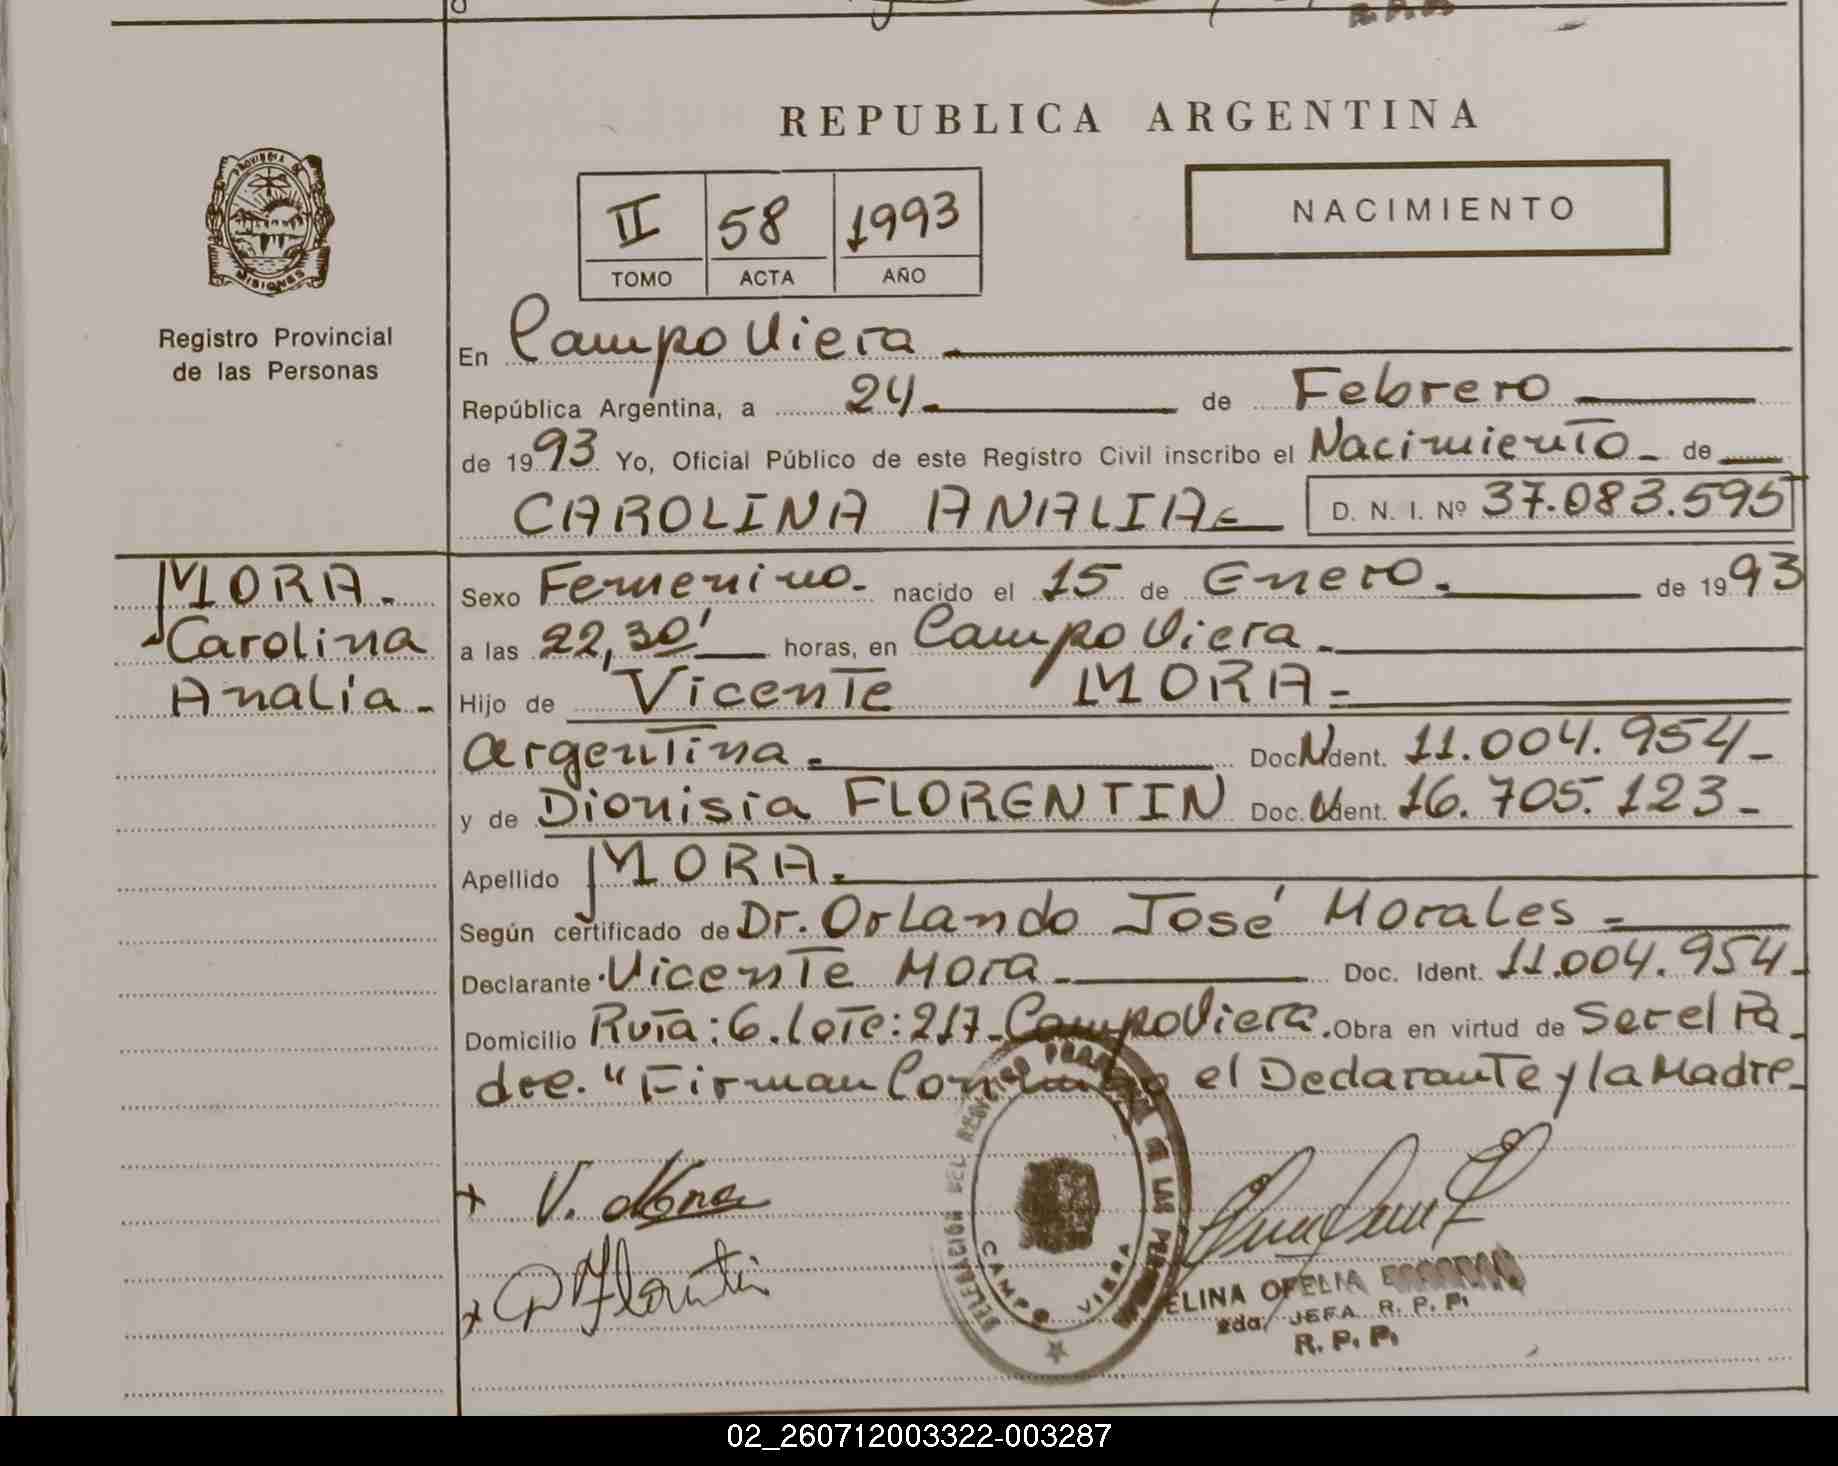 REPUBLICA ARGENTINA
PROVINCIA DE
MISIONES
Registro Provincial
de las Personas
II 58 1993
TOMO ACTA AÑO
NACIMIENTO
En Campo Viera
República Argentina, a 24 de Febrero
de 1993 Yo, Oficial Público de este Registro Civil inscribo el Nacimiento de
CAROLINA ANALIA D. N. I. Nº 37.083.595
MORA.
Carolina
Analía.
Sexo Femenino. nacido el 15 de Enero. de 1993
a las 22,30' horas, en Campo Viera
Hijo de Vicente MORA
Argentina. Doc. Ident. 11.004.954
y de Dionisia FLORENTIN Doc. Ident. 16.705.123
Apellido MORA.
Según certificado de Dr. Orlando José Morales
Declarante Vicente Mora Doc. Ident. 11.004.954
Domicilio Ruta: 6. Lote: 217 Campo Viera. Obra en virtud de Ser el Pa
dre. "Firman Conmigo el Declarante y la Madre
V. Mora
Florentin
DELEGACION DEL REGISTRO PROVINCIAL DE LAS PERSONAS
CAMPO VIERA
ELINA OFELIA
2da. JEFA R. P. P.
R. P. P.
02_260712003322-003287